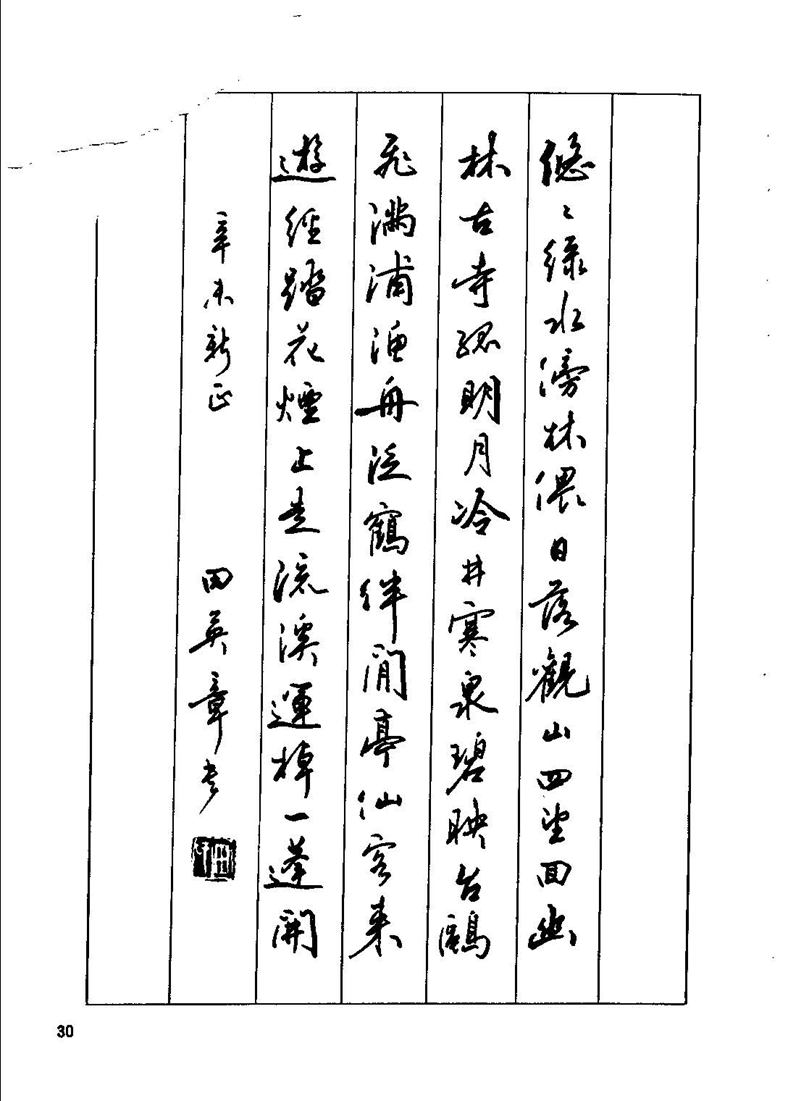 悠々綠水傍林偎日落觀山四望回幽
林古寺孤明月冷井寒泉碧映台鷗
飛滿浦漁舟泛鶴伴閒亭仙客來
遊徑踏花煙上走流溪遠棹一蓬開
辛未新正 田英章书
30